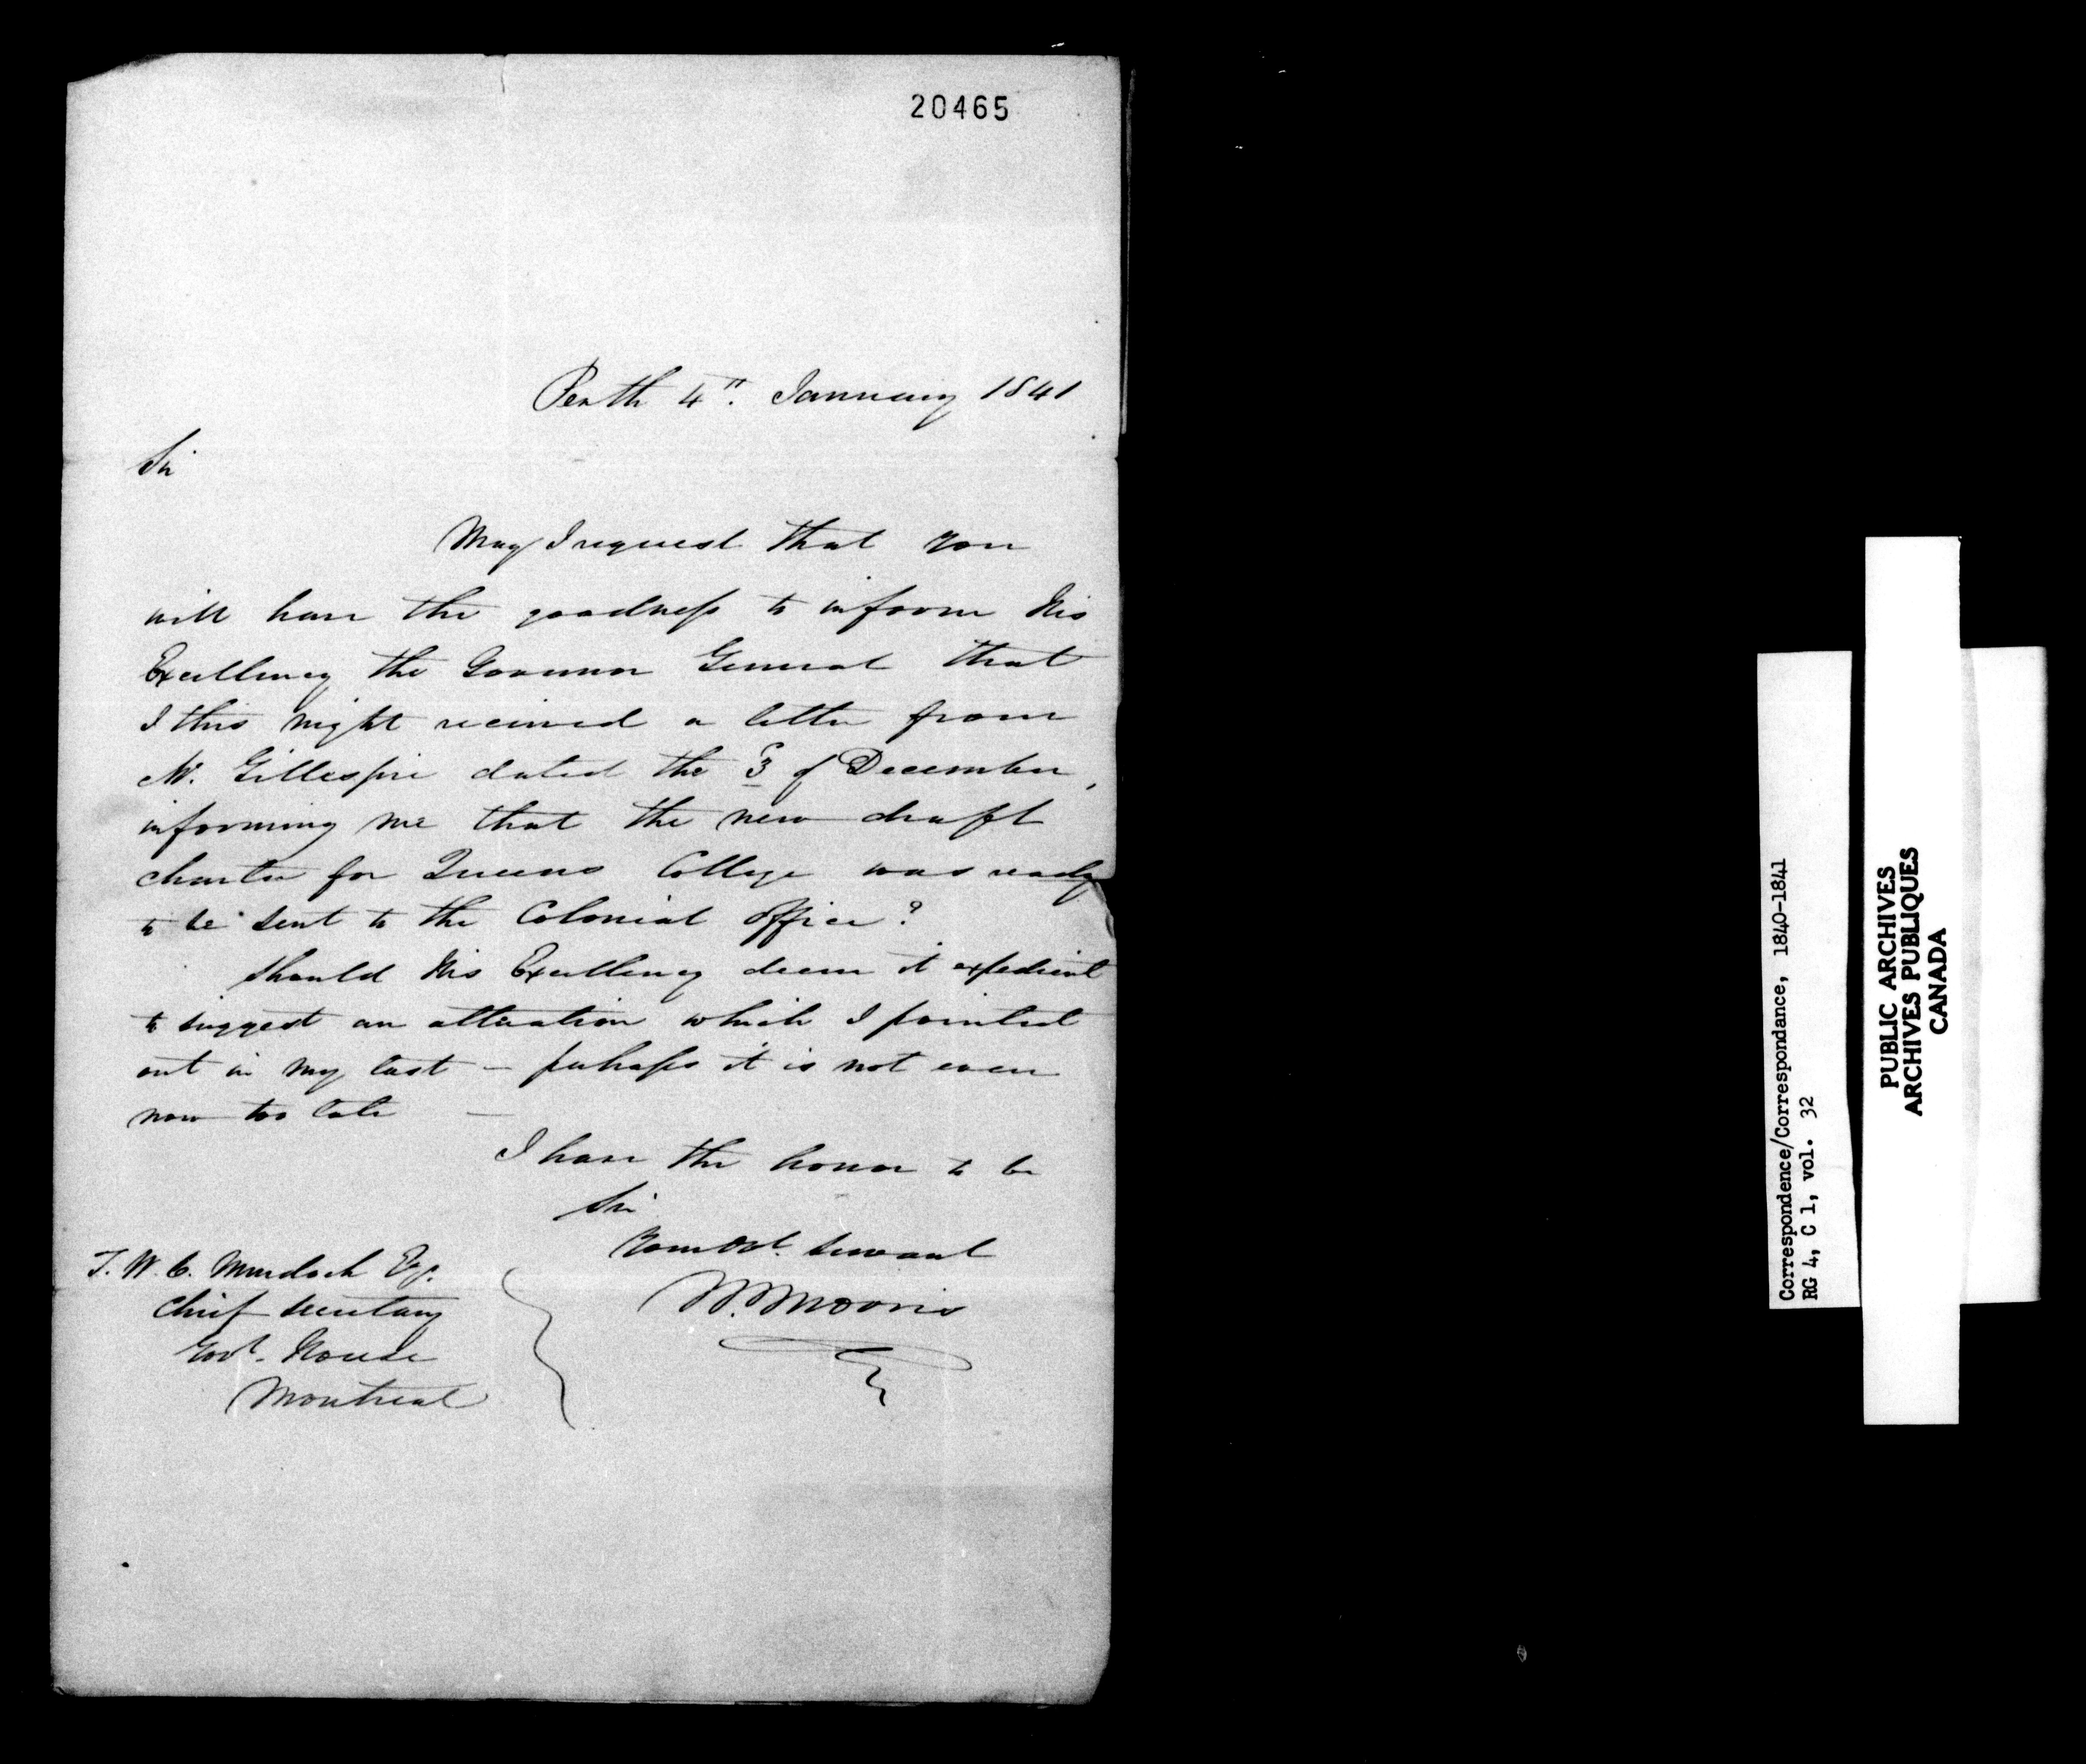 20465
Perth 4". January 1841
Sir
May I request that you
will have the goodness to inform His
Excellency the Governor General that
I this night received a letter from
Mr. Gillespie dated the 3 of December,
informing me that the new draft
charter for Queens College was ready
to be sent to the Colonial Office?
Should His Excellency deem it expedient
to suggest an alteration which I pointed
out in my last — perhaps it is not even
now too late —
I have the honor to be
Sir
Your Obt. Servant
W. Morris
T. W. C. Murdoch Esq.
Chief Secretary
Govt. House
Montreal
Correspondence/Correspondance, 1840-1841
RG 4, C 1, vol. 32
PUBLIC ARCHIVES
ARCHIVES PUBLIQUES
CANADA